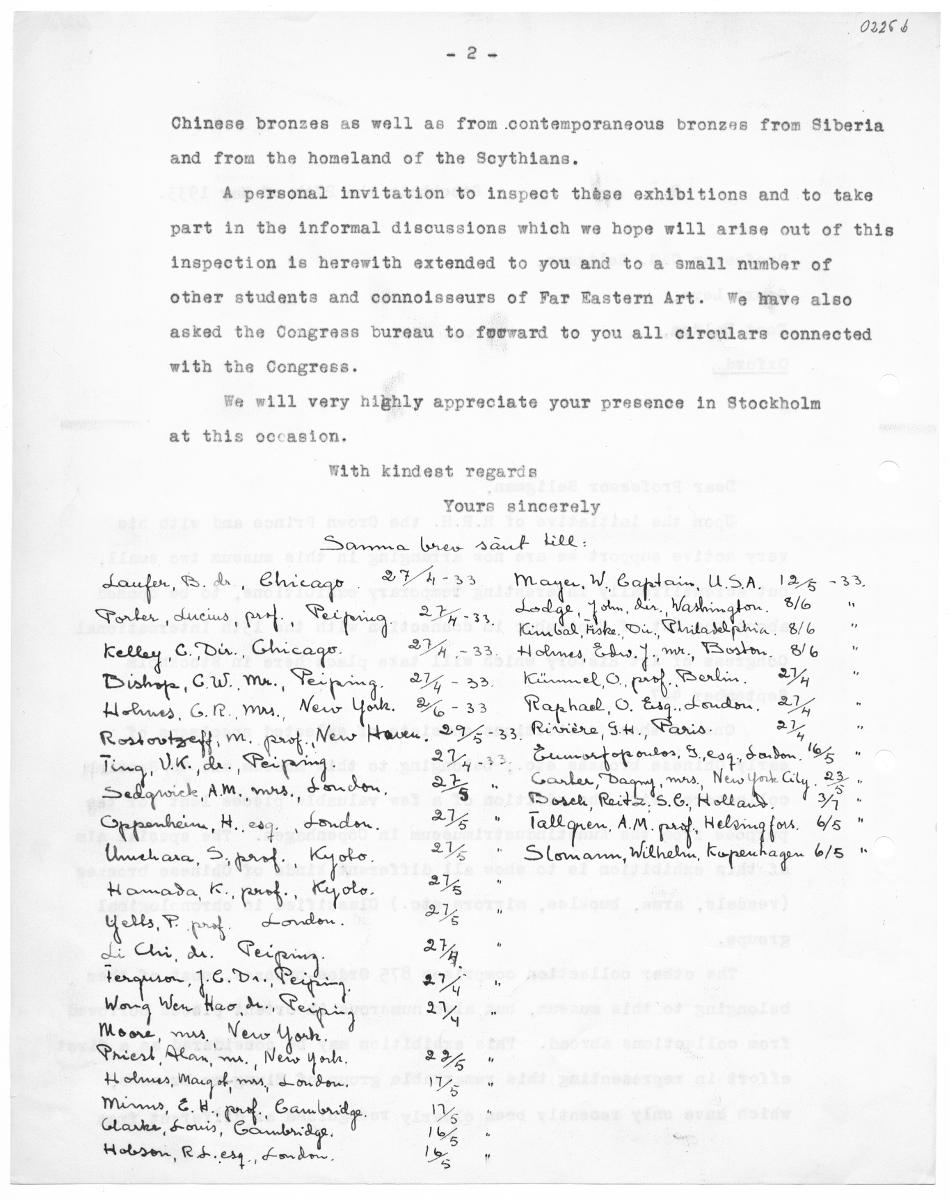 0225 b
- 2 -
Chinese bronzes as well as from contemporaneous bronzes from Siberia
and from the homeland of the Scythians.
A personal invitation to inspect these exhibitions and to take
part in the informal discussions which we hope will arise out of this
inspection is herewith extended to you and to a small number of
other students and connoisseurs of Far Eastern Art. We have also
asked the Congress bureau to forward to you all circulars connected
with the Congress.
We will very highly appreciate your presence in Stockholm
at this occasion.
With kindest regards
Yours sincerely
Samma brev sänt till:
Laufer, B. dr., Chicago. 27/4-33
Porter, Lucius, prof., Peiping. 27/4-33.
Kelley C., Dir., Chicago. 27/4-33.
Bishop, C.W., Mr., Peiping. 27/4-33.
Holmes, G.R., mrs., New York. 2/6-33
Rostovtzeff, M. prof., New Haven. 29/5-33.
Ting, V.K., dr., Peiping. 27/4-33.
Sedgwick, A.M., mrs., London. 27/5 "
Oppenheim, H. esq. London 27/5 "
Umehara, S., prof., Kyoto. 27/5 "
Hamada, K., prof., Kyoto. 27/5 "
Yetts, P. prof. London. 27/5 "
Li Chi, dr. Peiping. 27/4. "
Ferguson, J.C. Dr., Peiping. 27/4 "
Wong Wen Hao, dr., Peiping 27/4 "
Moore, mrs. New York.
Priest Alan, mr., New York. 22/5 "
Holmes, Margot, mrs., London. 17/5 "
Minns, E.H., prof., Cambridge. 17/5 "
Clarke, Louis, Cambridge. 16/5 "
Hobson, R.L. esq., London. 16/5 "
Mayer, W. Captain, U.S.A. 12/5-33.
Lodge, John, dir., Washington. 8/6 "
Kimbal, Fiske, Dir, Philadelphia. 8/6 "
Holmes, Edw. J., mr. Boston. 8/6 "
Kümmel, O., prof. Berlin. 27/4 "
Raphael, O. Esq., London. 27/4 "
Rivière, G.H., Paris. 27/4 "
Eumorfopoulos, G., esq., London 16/5 "
Carter, Dagny, mrs, New York City. 23/5 "
Bosch, Reitz, S.C., Holland. 3/7 "
Tallgren, A.M. prof. Helsingfors. 6/5 "
Slomann, Wilhelm, Kopenhagen 6/5 "